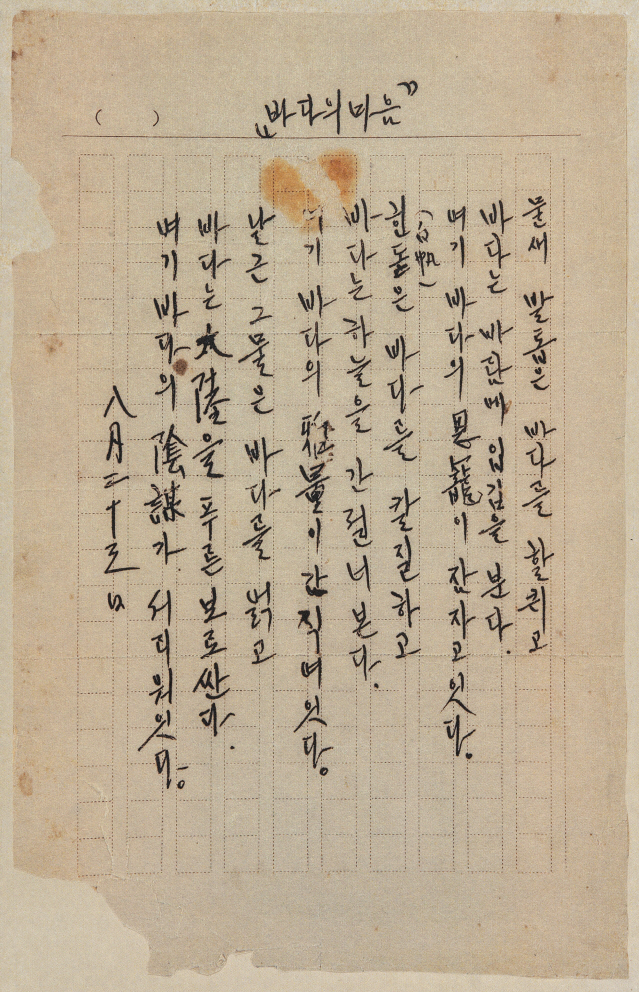 ( ) „바다의마음”
물새 발톱은 바다를 할퀴고
바다는 바람에 입김을 분다.
여기 바다의 恩寵이 잠자고잇다。
(白帆)
힌돛은 바다를 칼질하고
바다는하늘을 간질너본다.
여기 바다의 雅量이간직여잇다。
낡은 그물은 바다를 얽고
바다는大陸을 푸른 보로싼다.
여기 바다의 陰謀가 서리워잇다。
八月二十三日